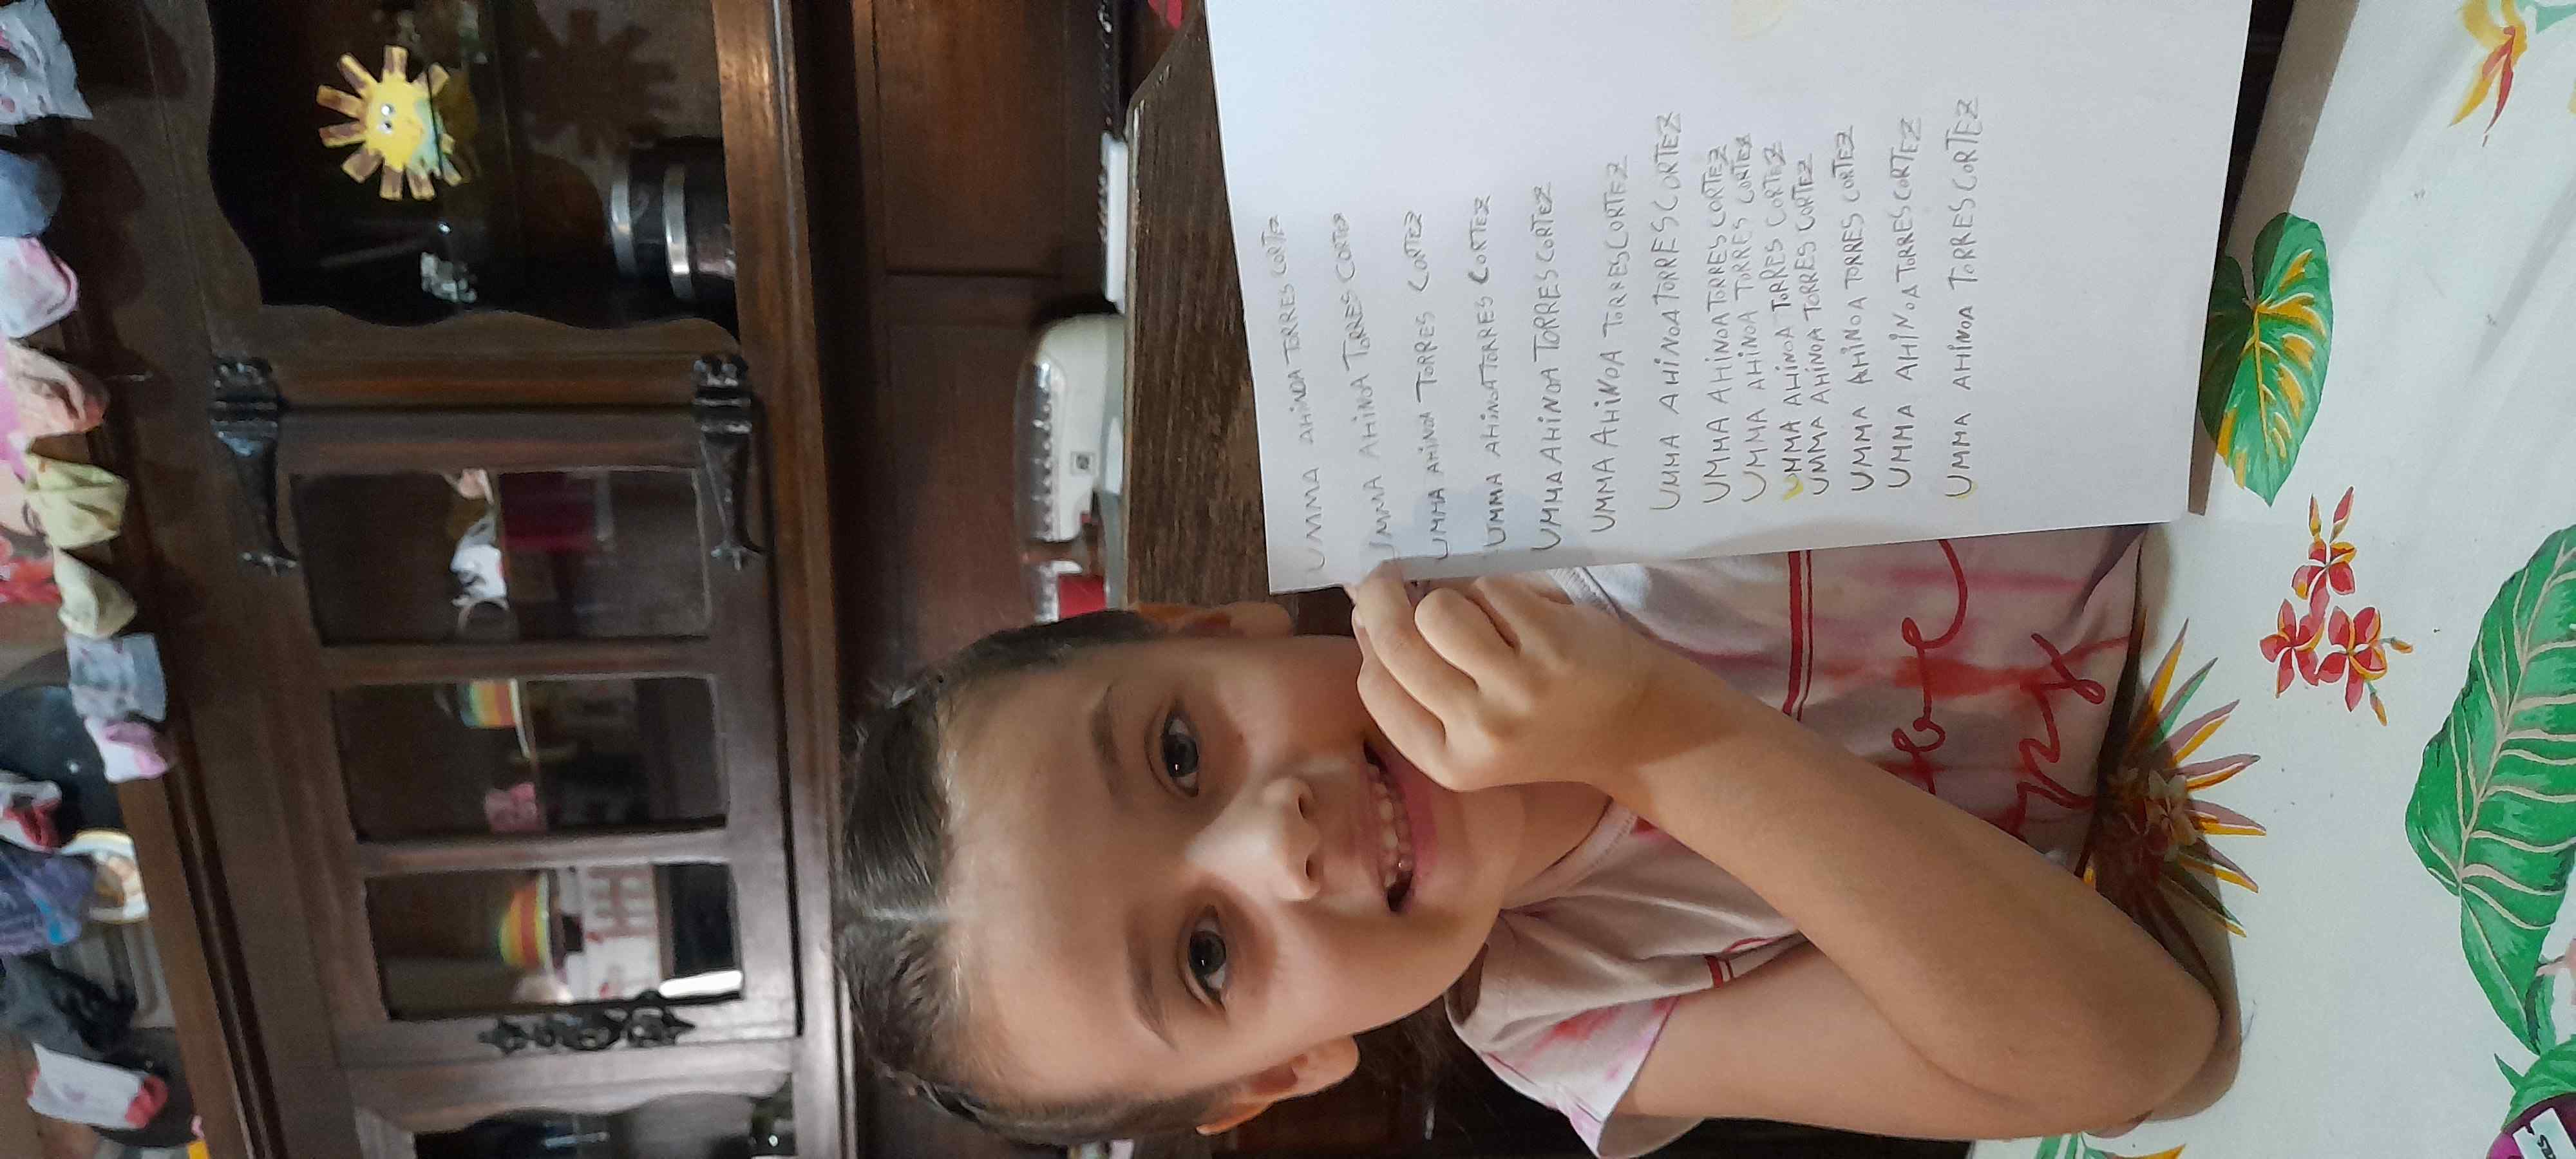 UMMA AHINOA TORRES CORTEZ
UMMA AHINOA TORRES CORTEZ
UMMA AHINOA TORRES CORTEZ
UMMA AHINOA TORRES CORTEZ
UMMA AHINOA TORRES CORTEZ
UMMA AHINOA TORRES CORTEZ
UMMA AHINOA TORRES CORTEZ
UMMA AHINOA TORRES CORTEZ
UMMA AHINOA TORRES CORTEZ
UMMA AHINOA TORRES CORTEZ
UMMA AHINOA TORRES CORTEZ
UMMA AHINOA TORRES CORTEZ
UMMA AHINOA TORRES CORTEZ
UMMA AHINOA TORRES CORTEZ